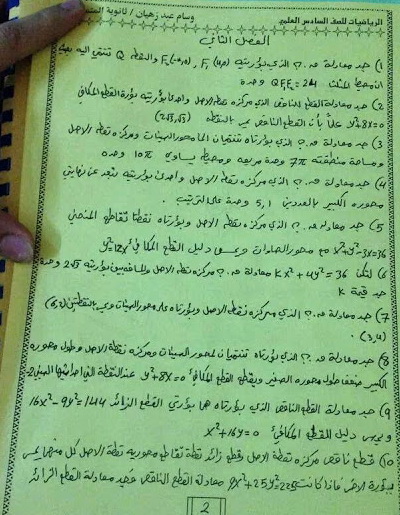 الرياضيات للصف السادس العلمي وسام عبد زهيان / ثانوية
الفصل الثاني
1) جد معادلة ق.؟ الذي بؤرتيه F₂(4,0) , F₁(-4,0) والنقطة Q تنتمي اليه بحيث
ان محيط المثلث QF₁F₂ = 24 وحدة
2) جد معادلة القطع الناقص الذي مركزه نقطة الاصل واحدى بؤرتيه بؤرة القطع المكافئ
y²+8x=0 علماً بأن القطع الناقص يمر بالنقطة (2√3,√3)
3) جد معادلة ق.؟ الذي بؤرتاه تنتميان الى محور الصينات ومركزه نقطة الاصل
ومساحة منطقته 7π وحدة مربعة ومحيطه يساوي 10π وحدة
4) جد معادلة ق.؟ الذي مركزه نقطة الاصل واحدى بؤرتيه تبعد عن نهايتي
محوره الكبير بالعددين 5,1 وحدة على الترتيب.
5) جد معادلة ق.؟ الذي مركزه نقطة الاصل وبؤرتاه نقطتا تقاطع المنحني
x²+y²-3x=36 مع محور الصادات ويمس دليل القطع المكافئ y²=12x
6) لتكن kx²+4y²=36 معادلة ق.؟ مركزه نقطة الاصل والمسافة بين بؤرتيه 2√3 وحدة
جد قيمة k
7) جد معادلة ق.؟ الذي مركزه نقطة الاصل وبؤرتاه على محور السينات ويمر بالنقطتين (6,2)
(3,4)
8) جد معادلة ق.؟ الذي بؤرتاه تنتميان لمحور السينات ومركزه نقطة الاصل وطول محوره
الكبير ضعف طول محوره الصغير ويقطع القطع المكافئ y²+8x=0 عند النقطة التي احداثيها السيني -2
9) جد معادلة القطع الناقص الذي بؤرتاه هما بؤرتي القطع الزائد 16x²-9y²=144
ويمس دليل القطع المكافئ x²+16y=0
10) قطع ناقص مركزه نقطة الاصل وقطع زائد نقطة تقاطع محوريه نقطة الاصل كل منهما يمر
ببؤرة الاخر فاذا كانت 9x²+25y²=225 معادلة القطع الناقص فجد معادلة القطع الزائد
2